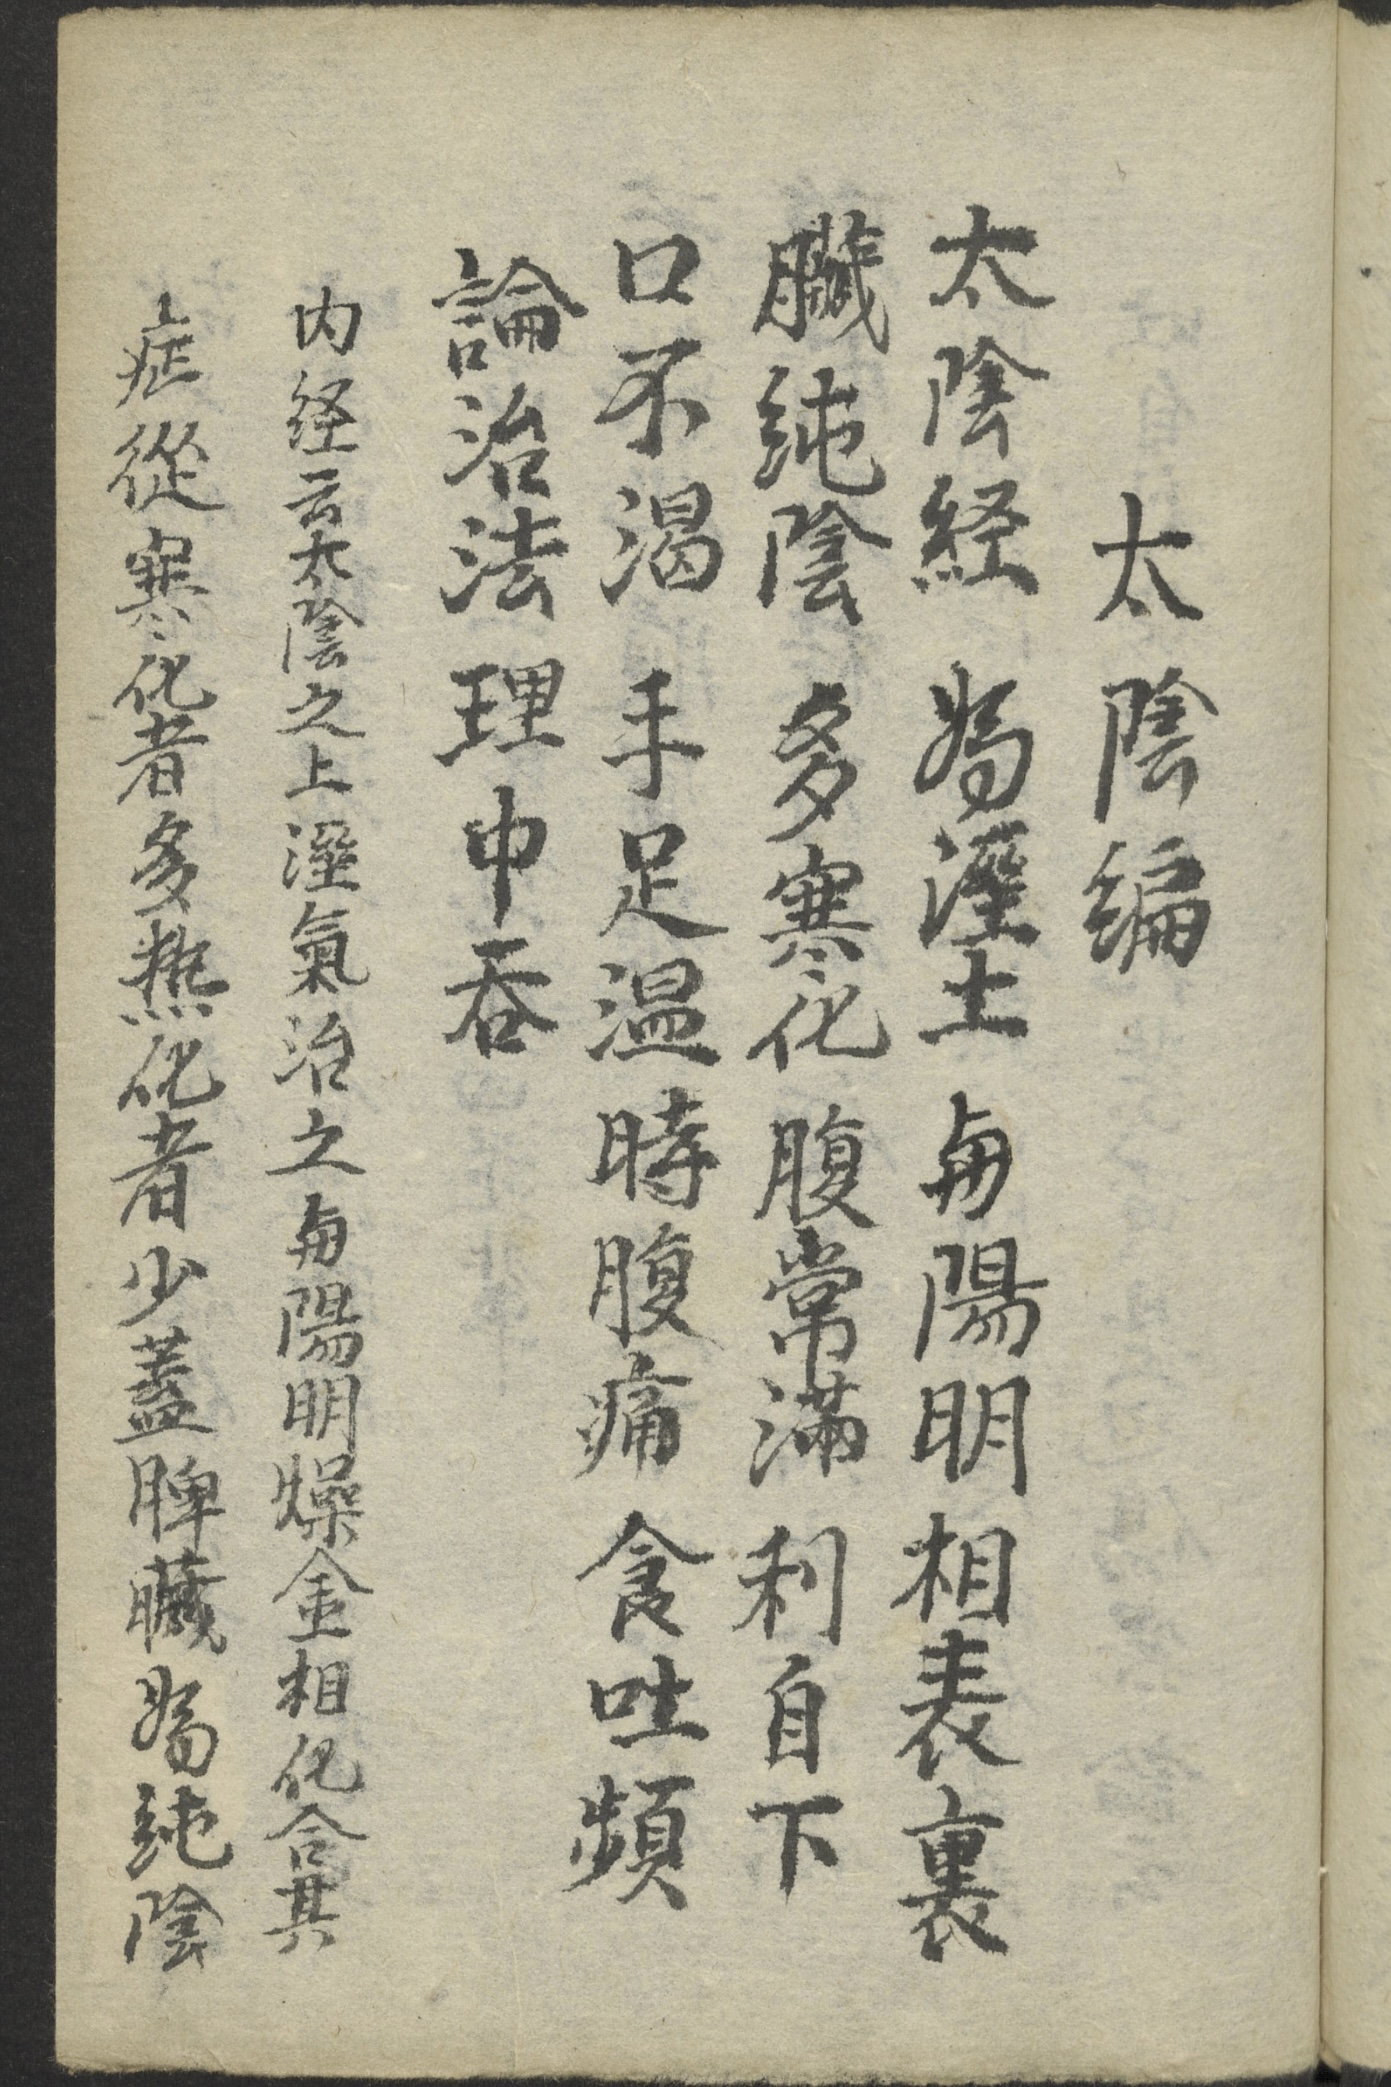 太陰編
太陰経為溼土與陽明相表裏
臟純陰多寒化腹常滿利自下
口不渴手足溫時腹痛食吐頻
論治法理中吞
内経云太陰之上溼氣治之與陽明燥金相化合其
症從寒化者多热化者少蓋脾臟為純陰